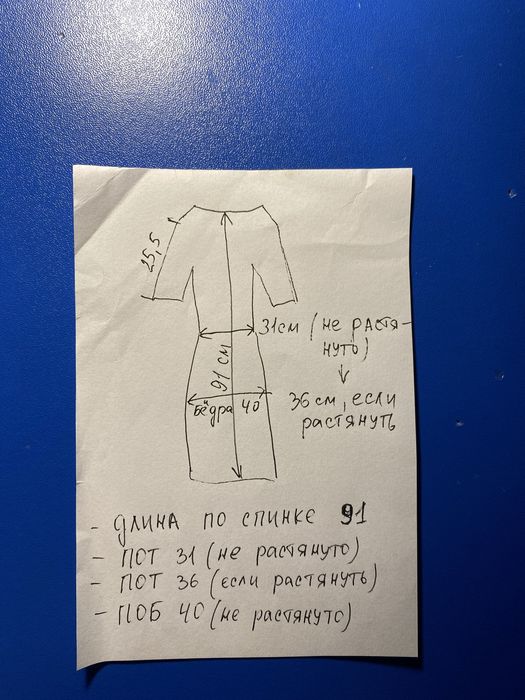 25,5
31см (не растя-
нуто)
91 см
36 см, если
растянуть
Бёдра 40
- длина по спинке 91
- ПОТ 31 (не растянуто)
- ПОТ 36 (если растянуть)
- ПОБ 40 (не растянуто)